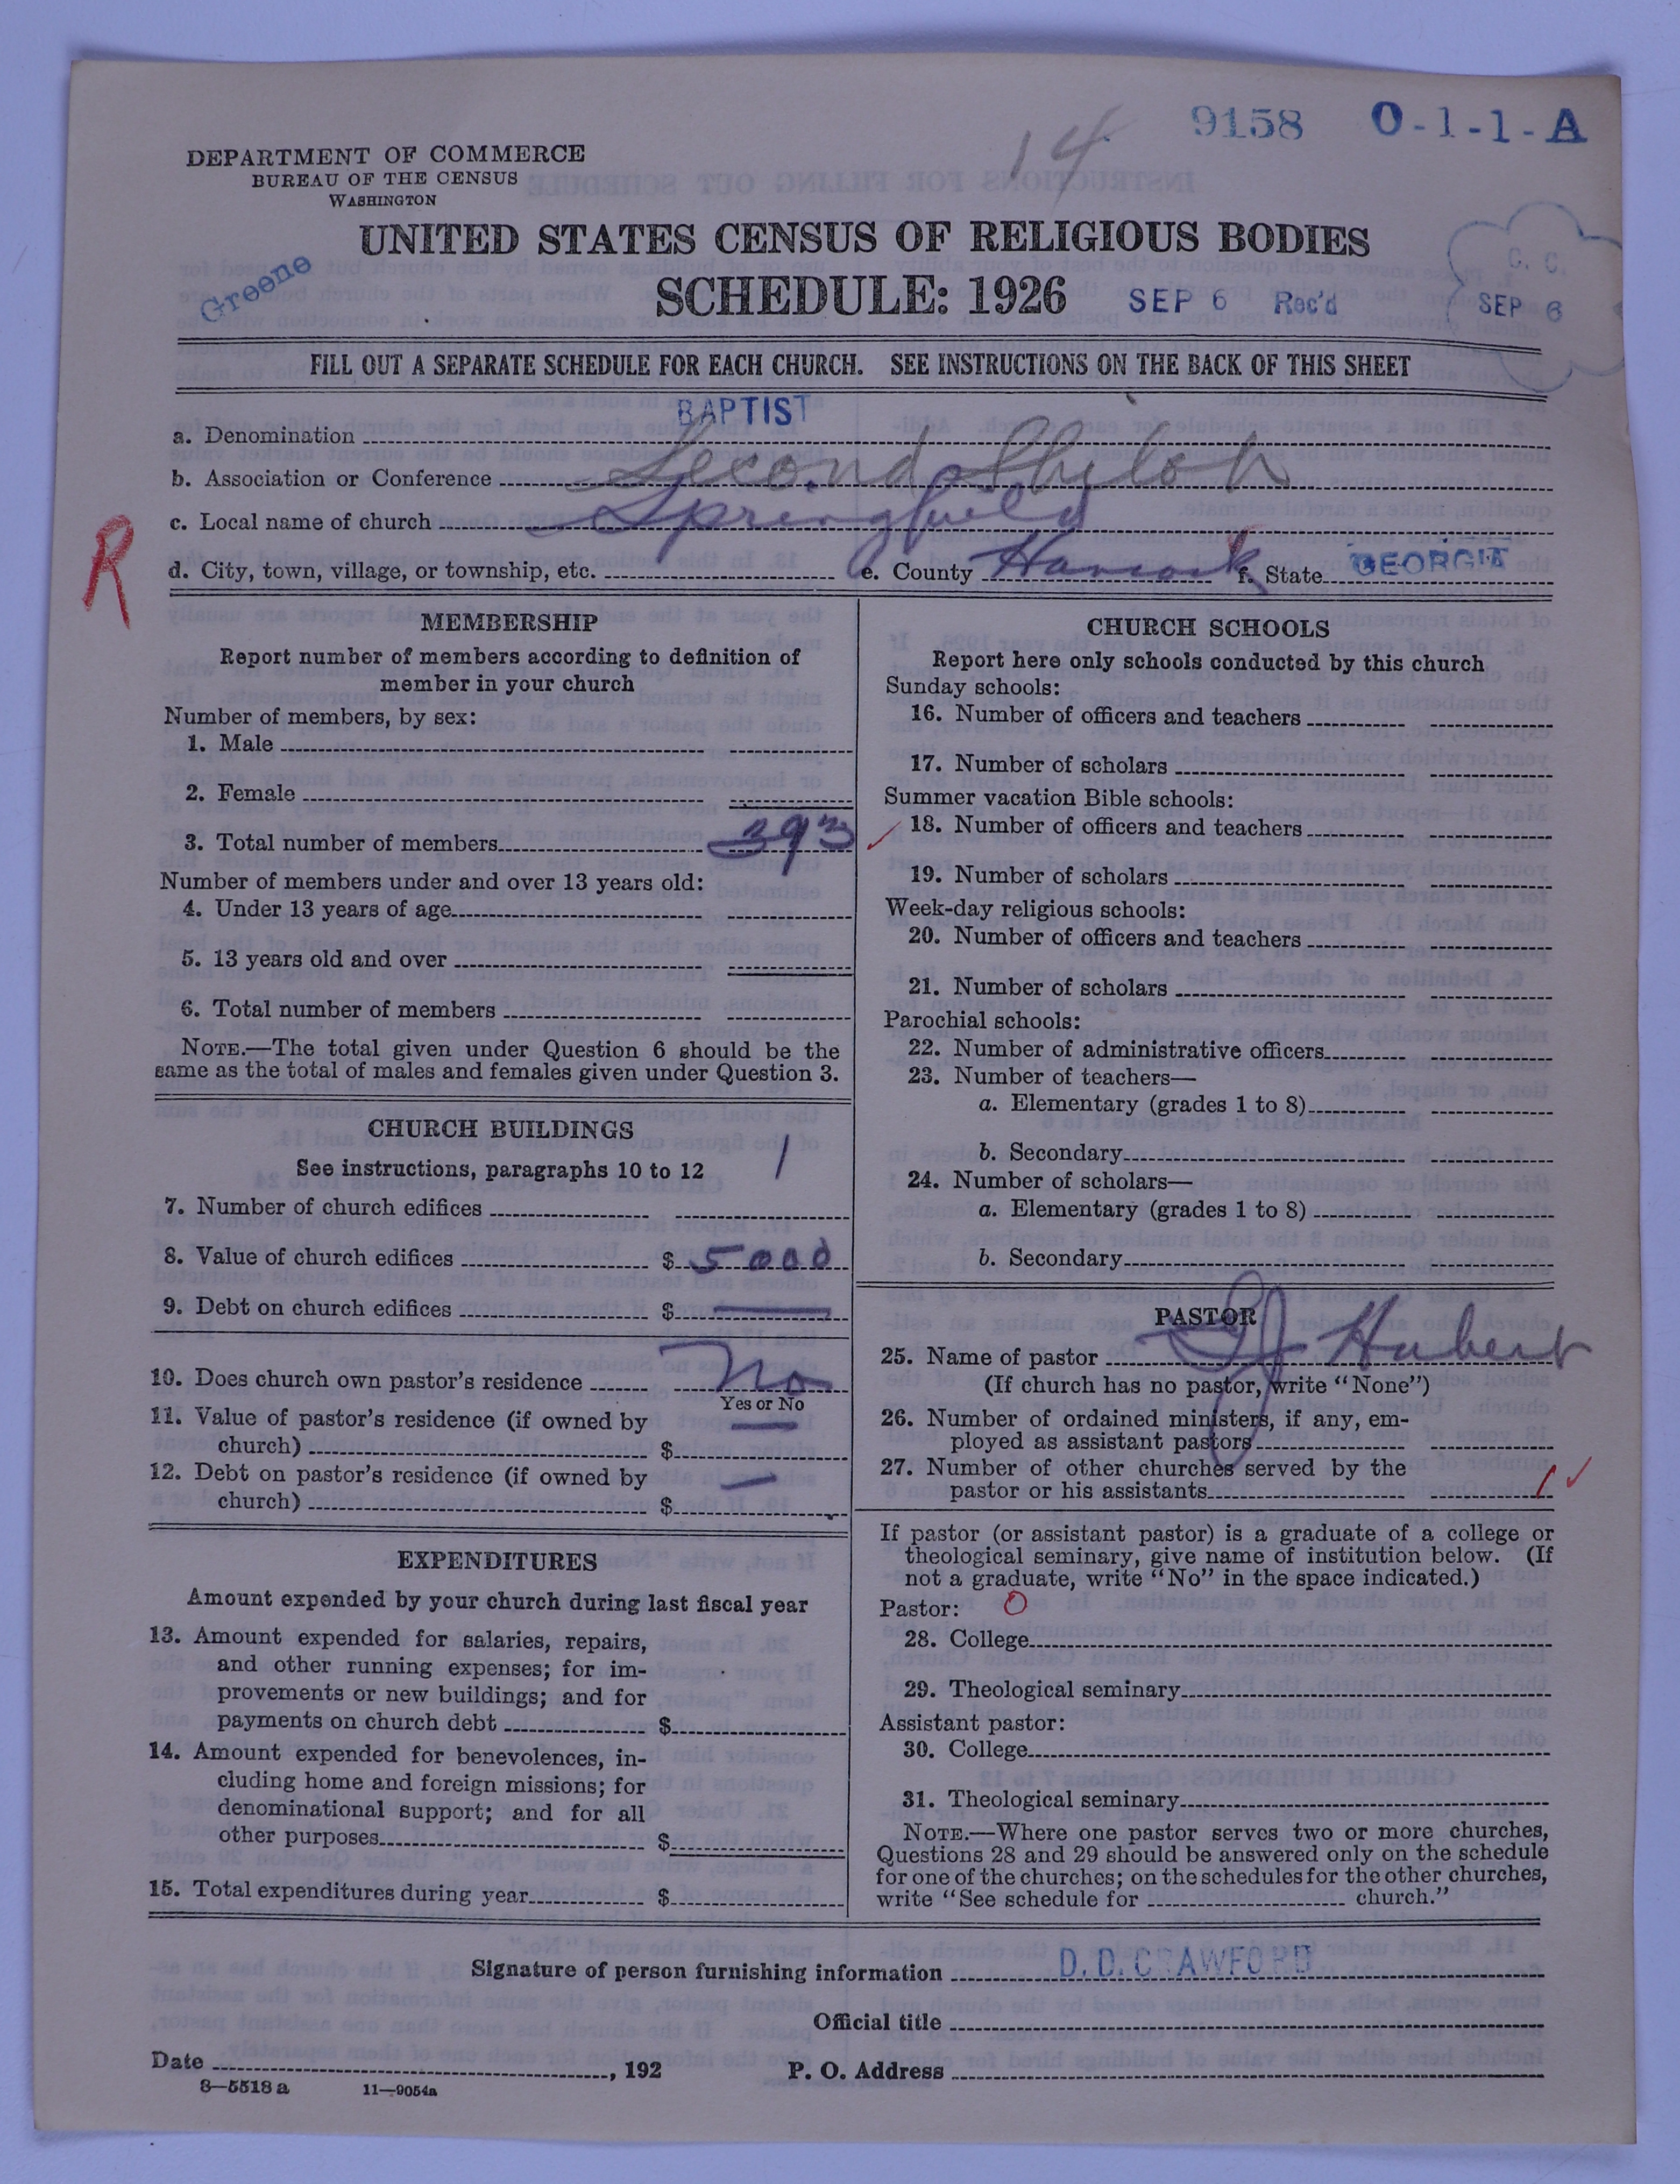 14 9158 O-1-1-A
DEPARTMENT OF COMMERCE
BUREAU OF THE CENSUS
WASHINGTON
UNITED STATES CENSUS OF RELIGIOUS BODIES
Greene
SCHEDULE: 1926 SEP 6 Rec'd
C. C.
SEP 6
FILL OUT A SEPARATE SCHEDULE FOR EACH CHURCH. SEE INSTRUCTIONS ON THE BACK OF THIS SHEET
a. Denomination BAPTIST
b. Association or Conference Second Shiloh
c. Local name of church Springfield
R
d. City, town, village, or township, etc. e. County Hancock f. State GEORGIA
MEMBERSHIP
Report number of members according to definition of
member in your church
Number of members, by sex:
1. Male
2. Female
3. Total number of members 393
Number of members under and over 13 years old:
4. Under 13 years of age
5. 13 years old and over
6. Total number of members
NOTE.—The total given under Question 6 should be the
same as the total of males and females given under Question 3.
CHURCH BUILDINGS
See instructions, paragraphs 10 to 12
7. Number of church edifices 1
8. Value of church edifices $ 5000
9. Debt on church edifices $ —
10. Does church own pastor's residence No
Yes or No
11. Value of pastor's residence (if owned by
church) $ —
12. Debt on pastor's residence (if owned by
church) $ —
EXPENDITURES
Amount expended by your church during last fiscal year
13. Amount expended for salaries, repairs,
and other running expenses; for im-
provements or new buildings; and for
payments on church debt $
14. Amount expended for benevolences, in-
cluding home and foreign missions; for
denominational support; and for all
other purposes $
15. Total expenditures during year $
CHURCH SCHOOLS
Report here only schools conducted by this church
Sunday schools:
16. Number of officers and teachers
17. Number of scholars
Summer vacation Bible schools:
18. Number of officers and teachers
19. Number of scholars
Week-day religious schools:
20. Number of officers and teachers
21. Number of scholars
Parochial schools:
22. Number of administrative officers
23. Number of teachers—
a. Elementary (grades 1 to 8)
b. Secondary
24. Number of scholars—
a. Elementary (grades 1 to 8)
b. Secondary
PASTOR
25. Name of pastor Hubert
(If church has no pastor, write "None")
26. Number of ordained ministers, if any, em-
ployed as assistant pastors
27. Number of other churches served by the
pastor or his assistants 1
If pastor (or assistant pastor) is a graduate of a college or
theological seminary, give name of institution below. (If
not a graduate, write "No" in the space indicated.)
Pastor: O
28. College
29. Theological seminary
Assistant pastor:
30. College
31. Theological seminary
NOTE.—Where one pastor serves two or more churches,
Questions 28 and 29 should be answered only on the schedule
for one of the churches; on the schedules for the other churches,
write "See schedule for church."
Signature of person furnishing information D. D. CRAWFORD
Official title
Date , 192 P. O. Address
8—5518 a 11—9054a